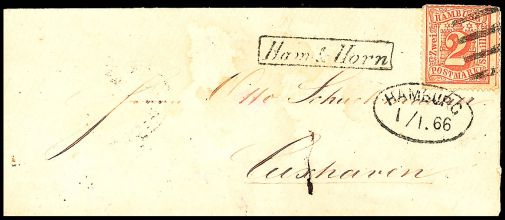 HAMBURG
Zwei
2
Schilling
POSTMARKE
Ham & Horn
Herrn Otto
HAMBURG
1/1.66
Cuxhaven.